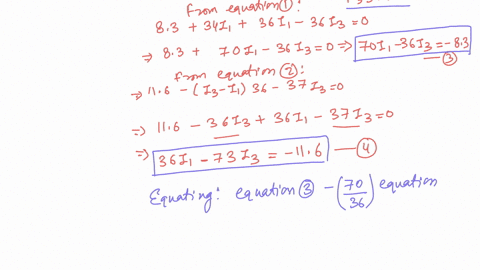 from equation ① :
8.3 + 34I₁ + 36I₁ - 36I₃ = 0
⇒ 8.3 + 70I₁ - 36I₃ = 0 ⇒ 70I₁ - 36I₃ = -8.3
③
from equation ② :
⇒ 11.6 - (I₃ - I₁) 36 - 37I₃ = 0
⇒ 11.6 - 36I₃ + 36I₁ - 37I₃ = 0
⇒ 36I₁ - 73I₃ = -11.6 — ④
Equating : equation ③ - (70/36) equation